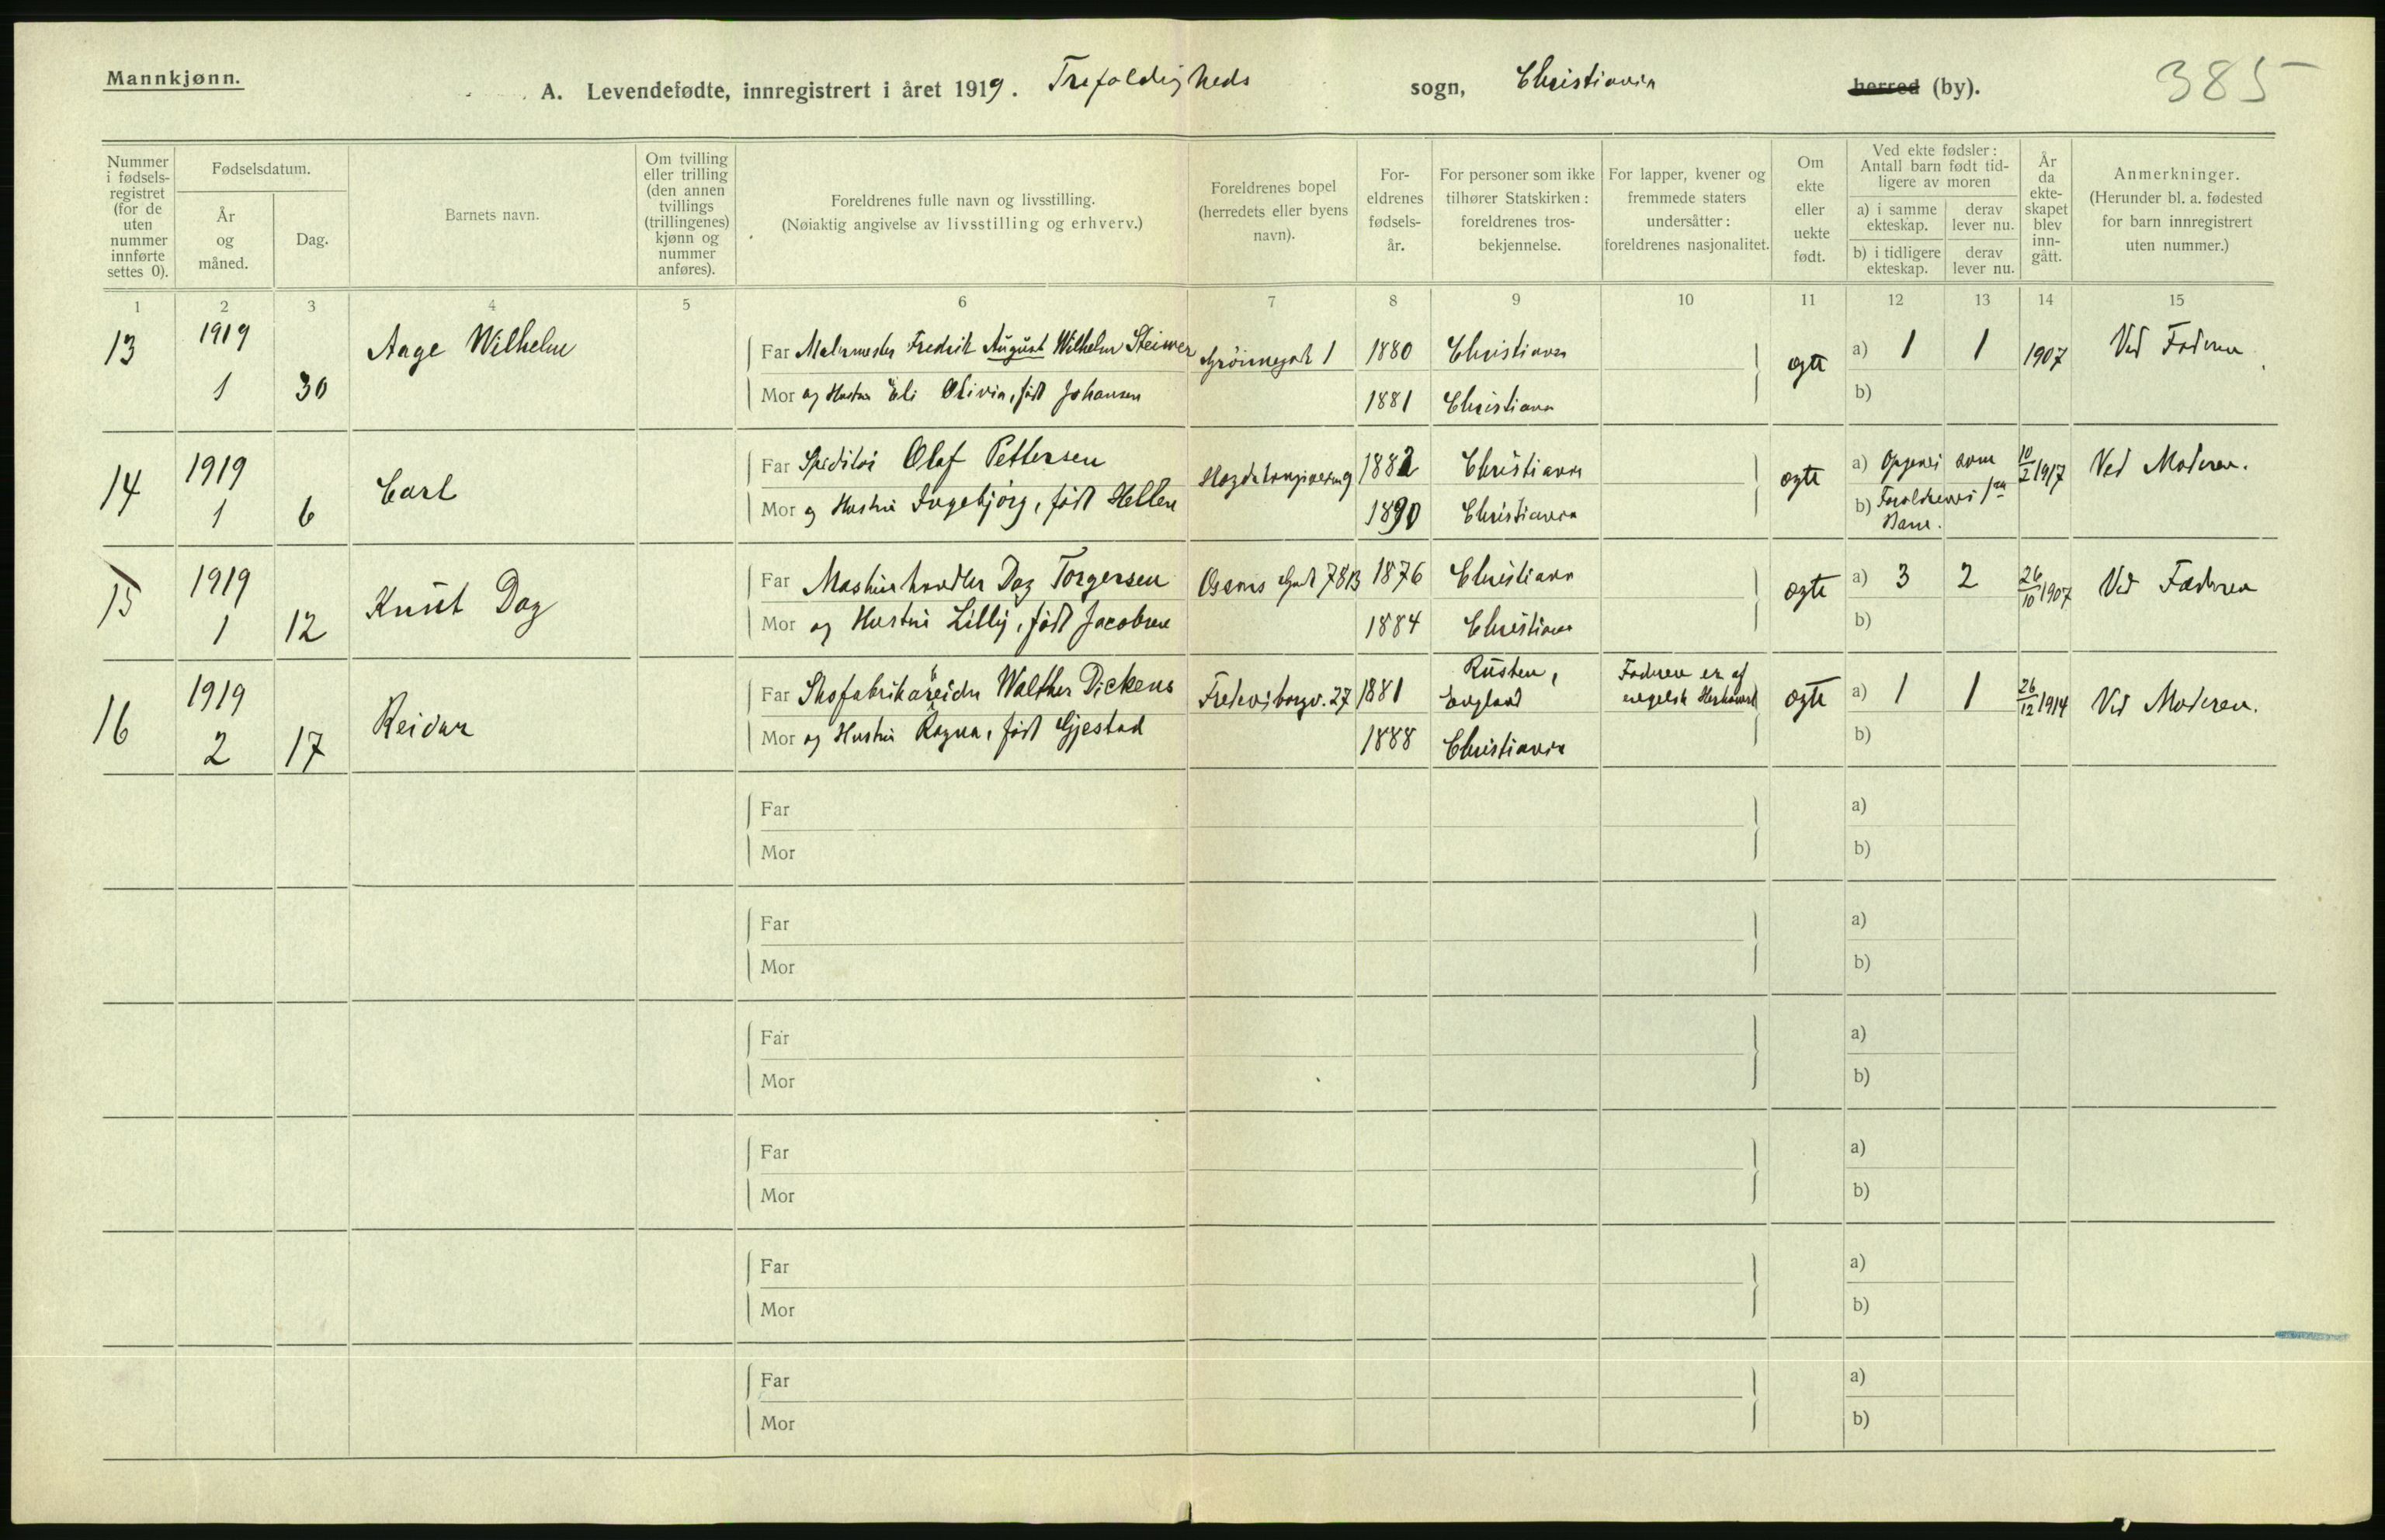 Mannkjønn.
A. Levendefødte, innregistrert i året 1919. Trefoldigheds sogn, Christiania herred (by). 385
Nummer i fødselsregistret (for de uten nummer innførte settes 0).
Fødselsdatum.
År og måned.
Dag.
Barnets navn.
Om tvilling eller trilling (den annen tvillings (trillingenes) kjønn og nummer anføres).
Foreldrenes fulle navn og livsstilling.
(Nøiaktig angivelse av livsstilling og erhverv.)
Foreldrenes bopel (herredets eller byens navn).
For-eldrenes fødsels-år.
For personer som ikke tilhører Statskirken: foreldrenes tros-bekjennelse.
For lapper, kvener og fremmede staters undersåtter: foreldrenes nasjonalitet.
Om ekte eller uekte født.
Ved ekte fødsler: Antall barn født tid-ligere av moren
a) i samme ekteskap.
derav lever nu.
b) i tidligere ekteskap.
derav lever nu.
År da ekte-skapet blev inn-gått.
Anmerkninger.
(Herunder bl. a. fødested for barn innregistrert uten nummer.)
1 2 3 4 5 6 7 8 9 10 11 12 13 14 15
13 1919 Aage Wilhelm Far Malermester Fredrik August Wilhelm Steiwer Grönnegade 1 1880 Christiania ægte a) 1 1 1907 Ved Faderen
1 30 Mor og Hustru Eli Olivia, født Johansen 1881 Christiania b)
14 1919 Carl Far Speditør Olaf Pettersen 1882 Christiania ægte a) Opgives som 10/2 1917 Ved Moderen.
1 6 Mor og Hustru Ingebjørg, født Hellen 1890 Christiania b) Forældrenes 1ste
Barn.
15 1919 Knut Dag Far Maskinhandler Dag Torgersen Oscars Gade 78B 1876 Christiania ægte a) 3 2 26/10 1907 Ved Faderen
1 12 Mor og Hustru Lilly, født Jacobsen 1884 Christiania b)
16 1919 Reidar Far Skofabrikarbeider Walther Dickens Frederiborgv. 27 1881 Rusten, England Faderen er af engelsk Herkomst ægte a) 1 1 26/12 1914 Ved Moderen.
2 17 Mor og Hustru Ragna, født Gjestad 1888 Christiania b)
Far a)
Mor b)
Far a)
Mor b)
Far a)
Mor b)
Far a)
Mor b)
Far a)
Mor b)
Far a)
Mor b)